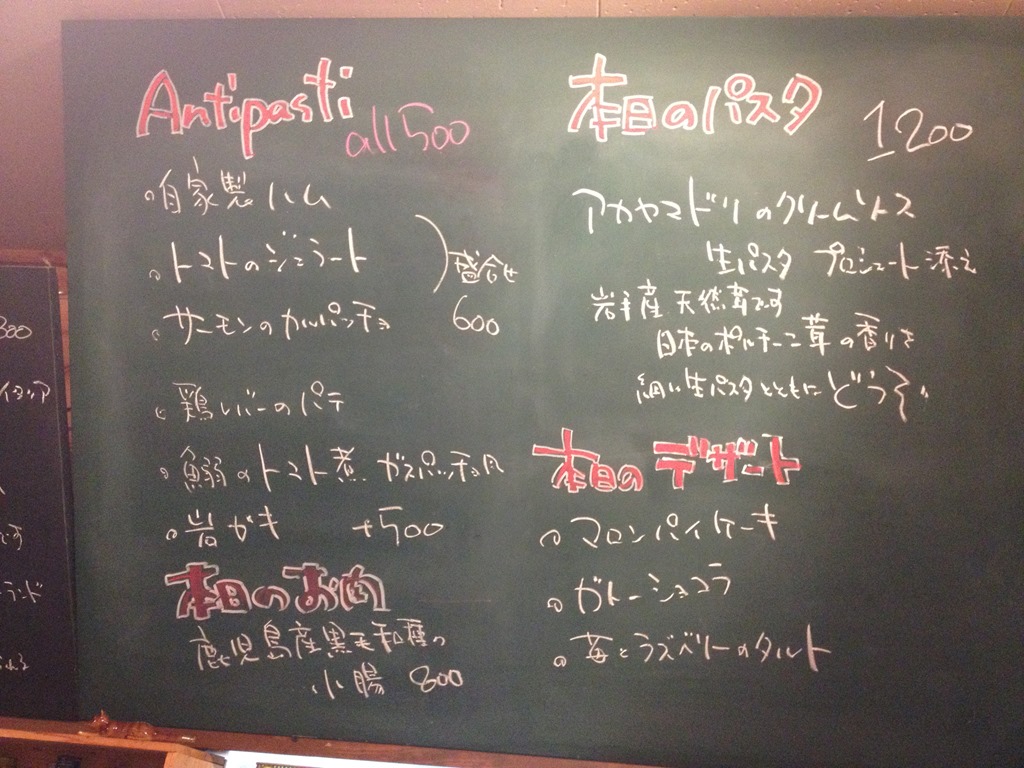 Antipasti
all 500
自家製ハム
トマトのジェラート
サーモンのカルパッチョ
盛合せ
600
鶏レバーのパテ
鰯のトマト煮 ガスパッチョ風
岩ガキ +500
本日のお肉
鹿児島産黒毛和種の
小腸 800
本日のパスタ
1200
アカヤマドリのクリームソース
生パスタ プロシュート添え
岩手産 天然茸です
日本のポルチーニ茸の香りを
細い生パスタとともにどうぞ。
本日のデザート
マロンパイケーキ
ガトーショコラ
苺とラズベリーのタルト
300
イタリア
です
ランド